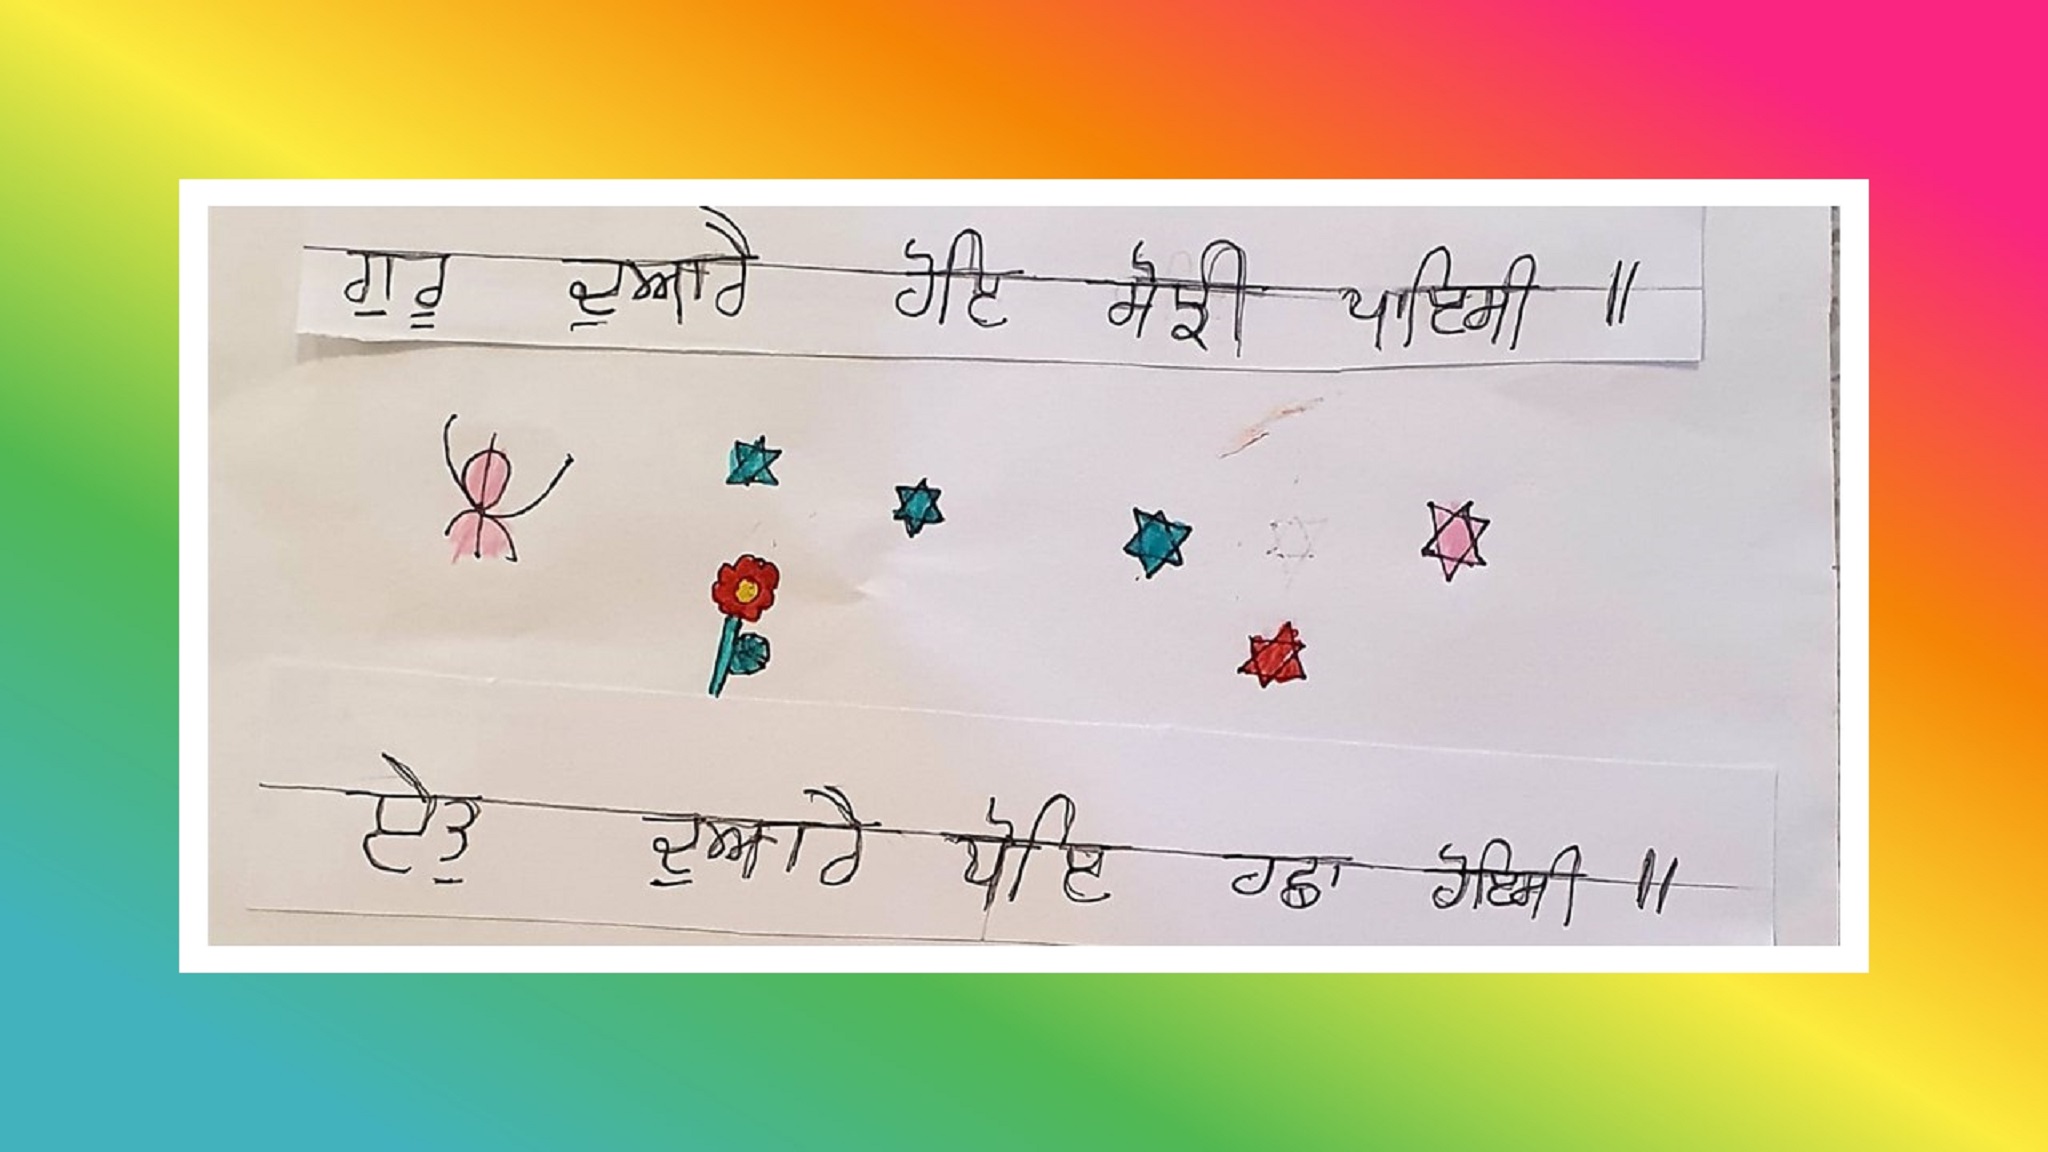 ਗੁਰੂ ਦੁਆਰੈ ਹੋਇ ਸੋਝੀ ਪਾਇਸੀ ॥
ਏਤੁ ਦੁਆਰੈ ਧੋਇ ਹਛਾ ਹੋਇਸੀ ॥